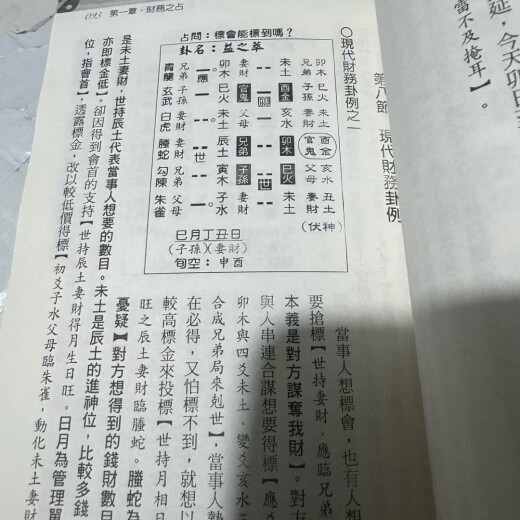 延，今天卯日
雷不及掩耳】。
第八節 現代財務卦例
○現代財務卦例之一
093 第一章·財務之占
占問：標會能標到嗎？
卦名：益之萃
青龍 兄弟 卯木 妻財 未土 兄弟 卯木
玄武 子孫 巳火 官鬼 酉金 子孫 巳火
白虎 妻財 未土 父母 亥水 妻財 未土
螣蛇 妻財 辰土 兄弟 卯木 官鬼 酉金
勾陳 兄弟 寅木 子孫 巳火 父母 亥水
朱雀 父母 子水 妻財 未土 妻財 丑土
應
應
世
世
（伏神）
巳月丁丑日
（子孫）（妻財）
旬空：申酉
當事人想標會，也有人想
要搶標【世持妻財、應臨兄弟
本義是對方謀奪我財】。對方
與人串連合謀想要得標【應爻
卯木與四爻未土、變爻亥水三
合成兄弟局來剋世】，當事人勢
在必得，又怕標不到，就想以
較高標金來投標【世持月相日
旺之辰土妻財臨螣蛇。螣蛇為
憂疑】對方想得到的錢財數目
是未土妻財，世持辰土代表當事人想要的數目。未土是辰土的進神位，比較多錢
亦即標金低】。卻因得到會首的支持【世持辰土妻財得月生日旺。日月為管理單
位，指會首】，透露標金，改以較低價得標【初爻子水父母臨朱雀，動化未土妻財